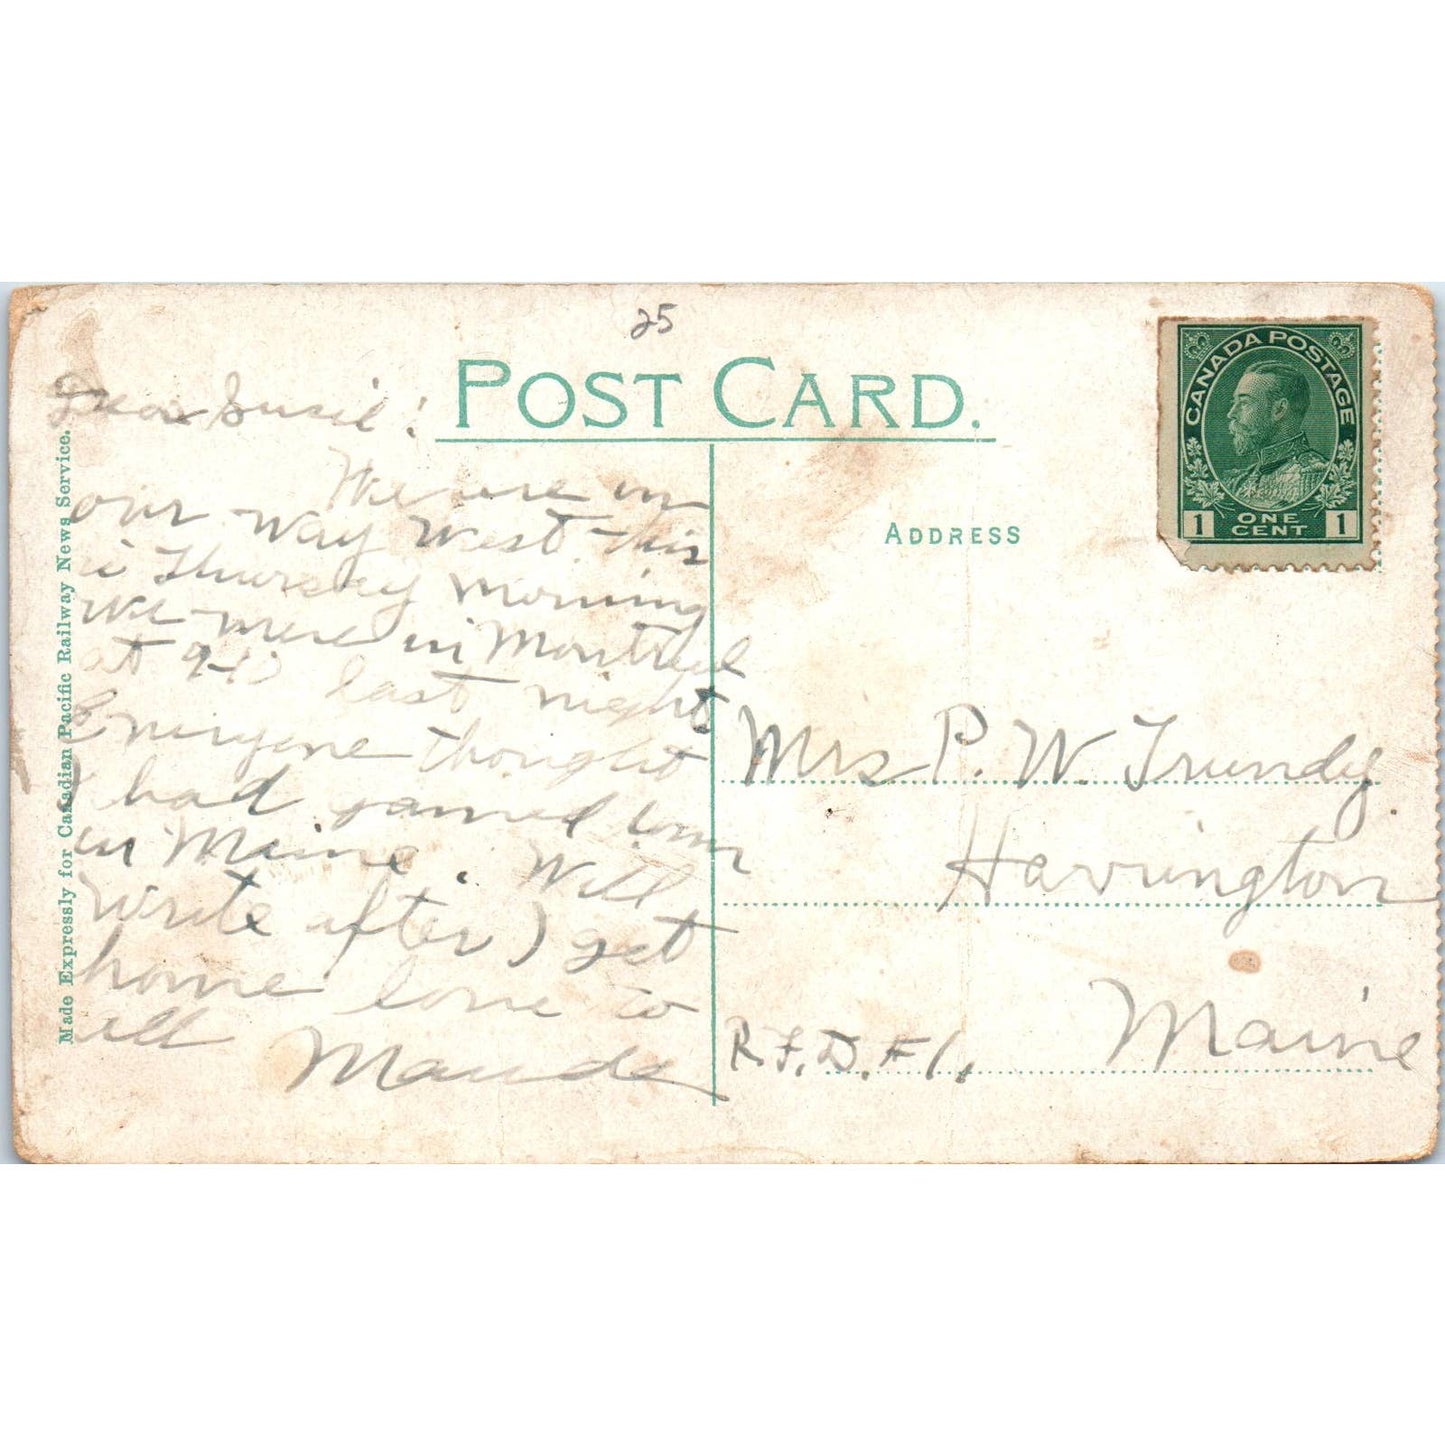 25
POST CARD.
CANADA POSTAGE
1 ONE CENT 1
ADDRESS
Made Expressly for Canadian Pacific Railway News Service.
Dear Susie!
We are on
our way west this
is Thursday morning
We were in Montreal
at last night
Everyone thought
I had gained
in Maine. Will
write after I get
home love to
all Maude
Mrs P. W. Trundy.
Harrington
Maine
R.F.D. #1.